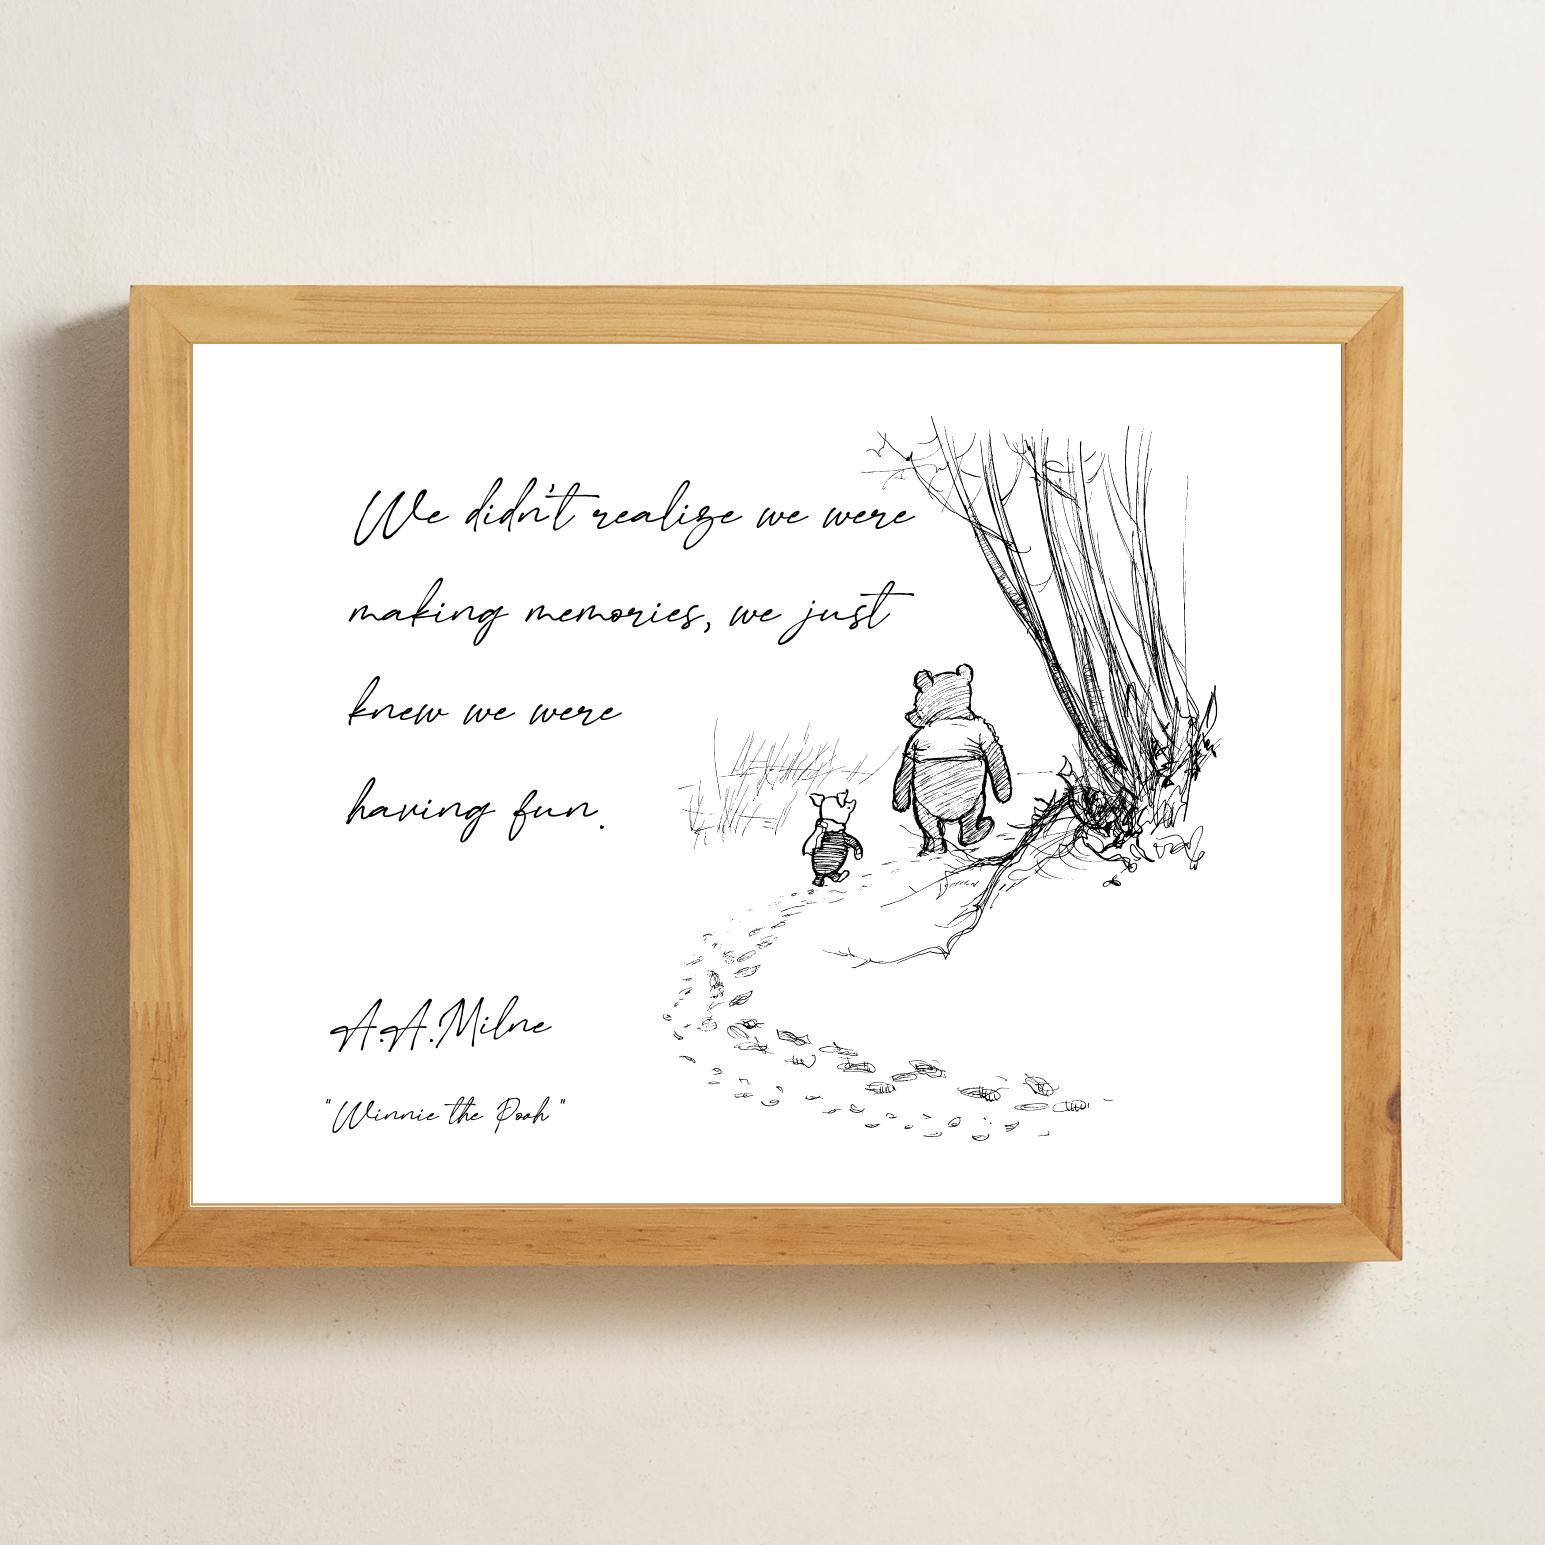 We didn't realize we were
making memories, we just
knew we were
having fun.
A.A.Milne
"Winnie the Pooh"